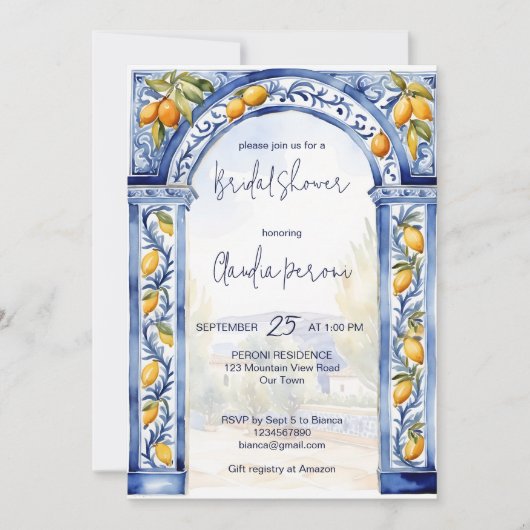 please join us for a
Bridal Shower
honoring
Claudia Peroni
SEPTEMBER 25 AT 1:00 PM
PERONI RESIDENCE
123 Mountain View Road
Our Town
RSVP by Sept 5 to Bianca
1234567890
bianca@gmail.com
Gift registry at Amazon